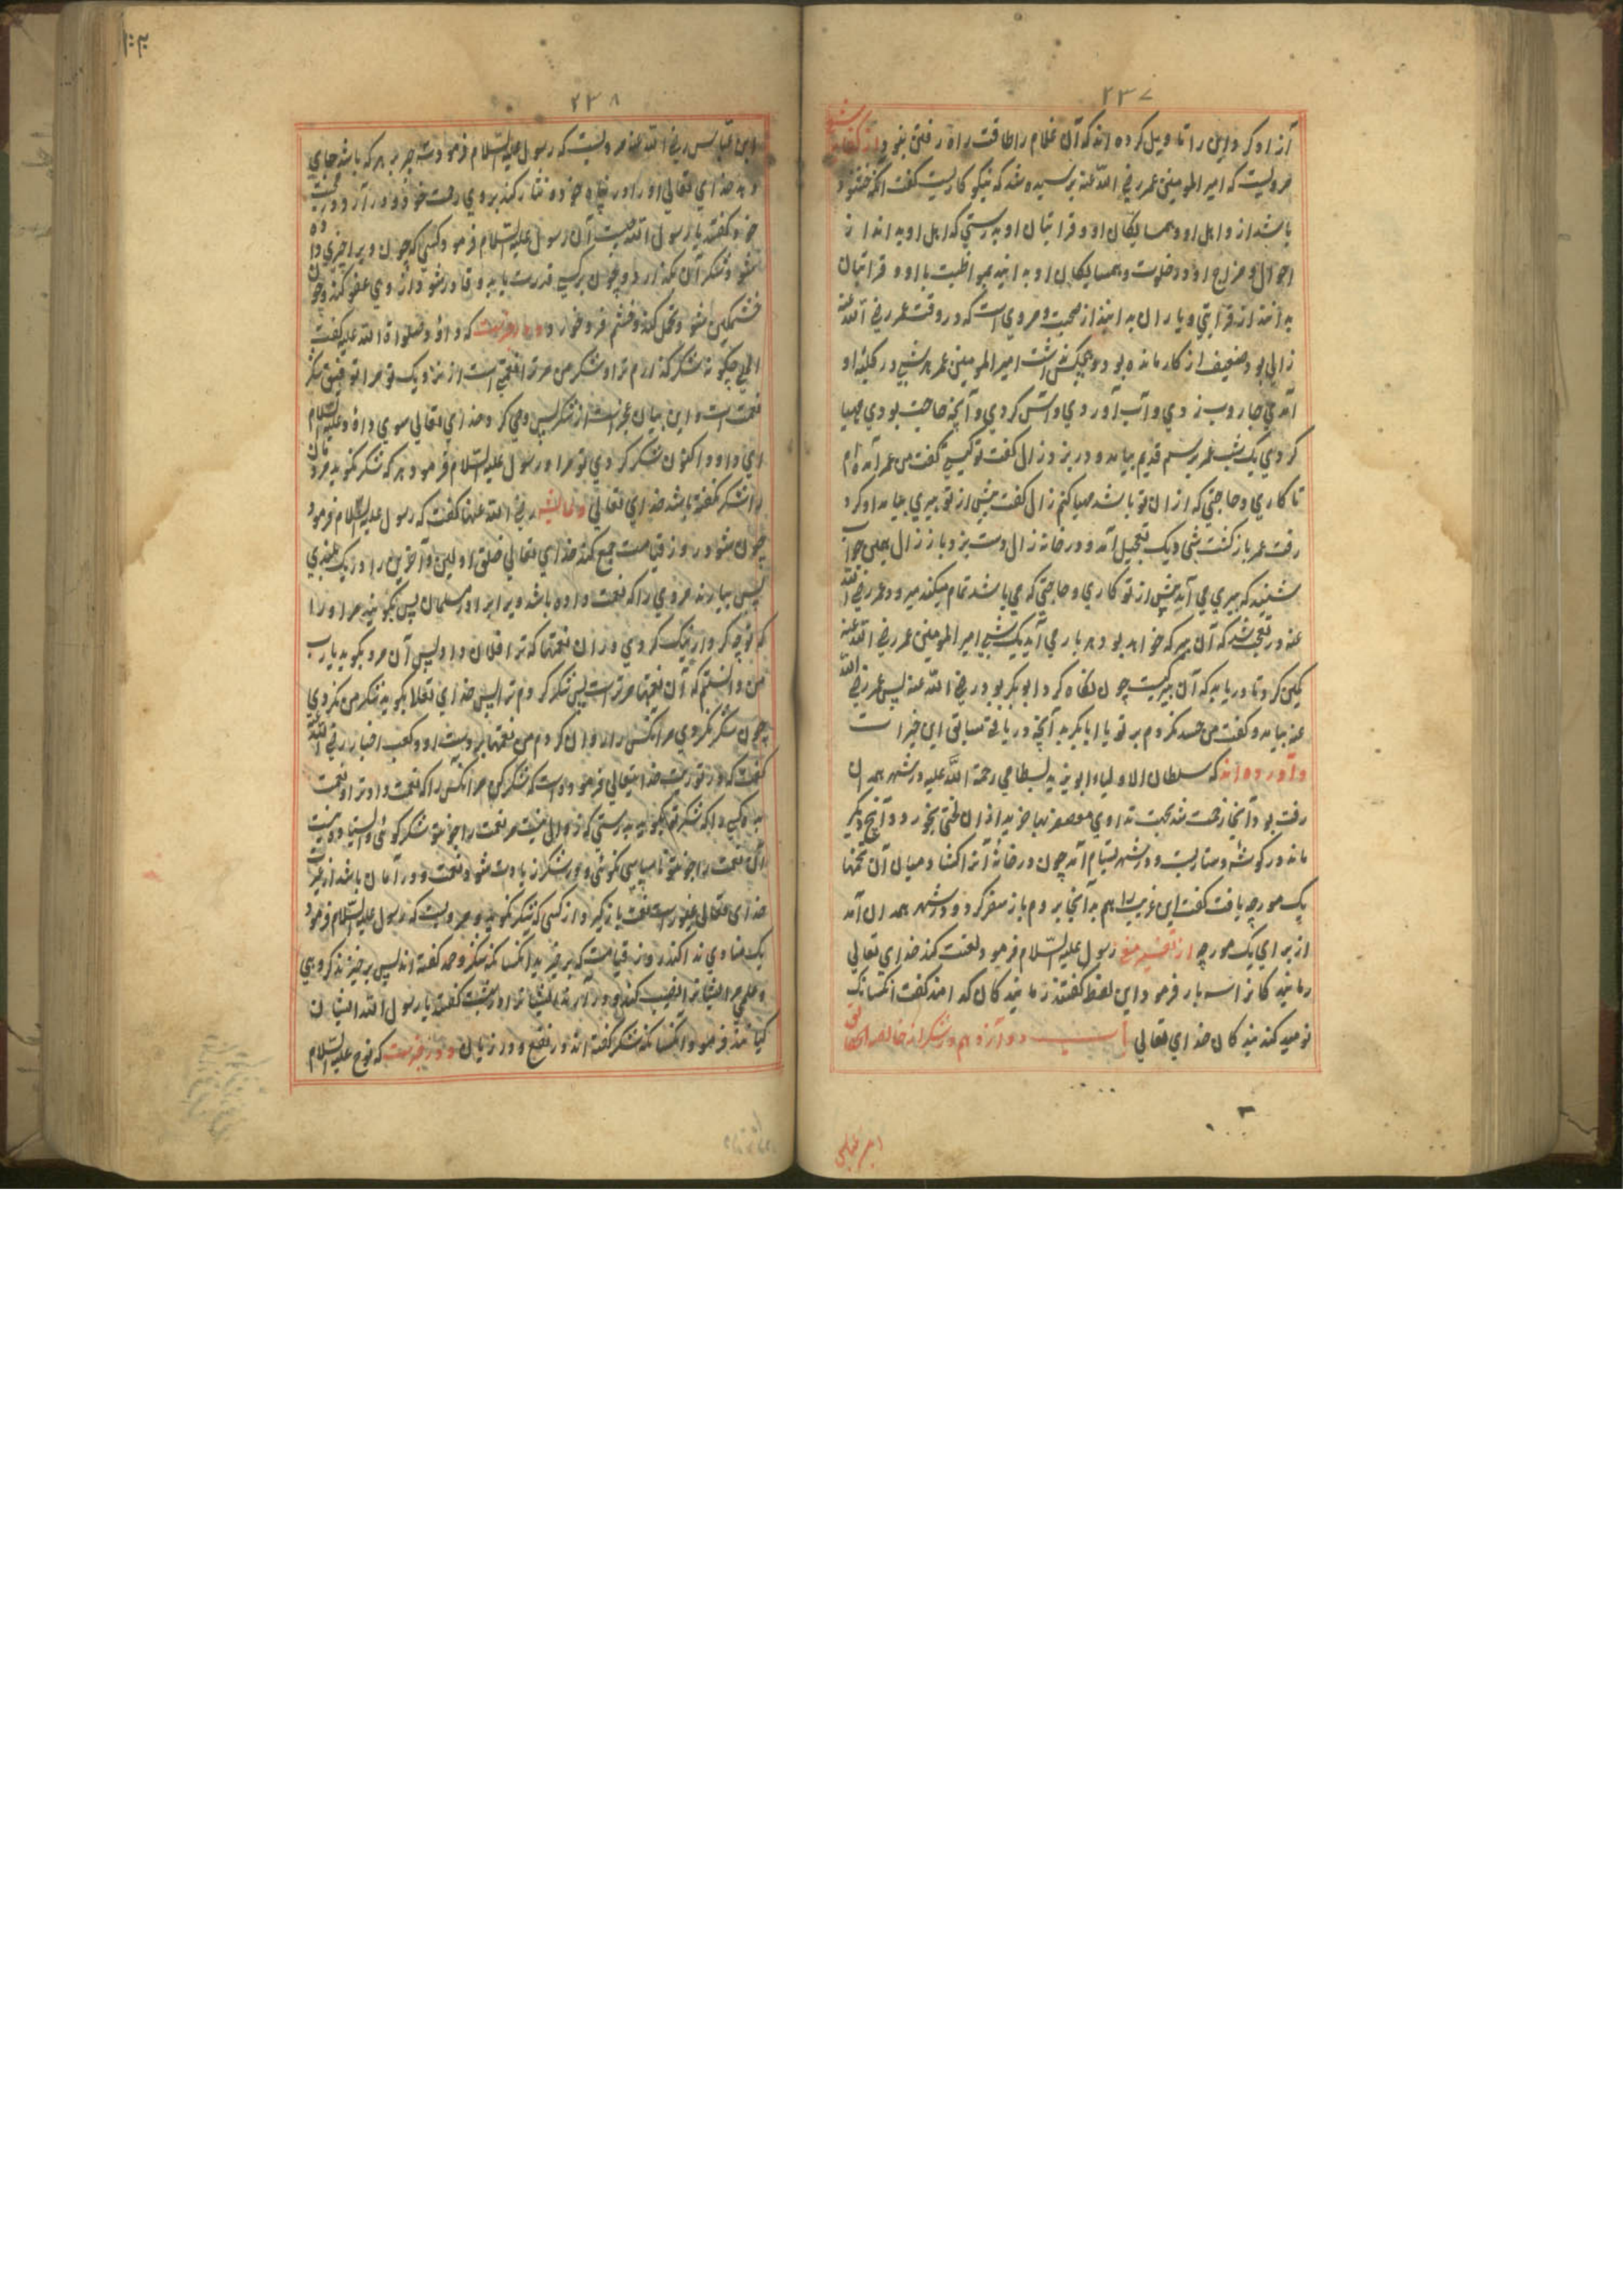 ۲۳۷
آزاد کرد و این را تاویل کرده اند که آن غلام را طاقت راه رفتن نبود از
مرویست که امیر المومنین عمر رضی الله عنه پرسیده شد که نیکو کار کیست گفت آنکه خشنود
باشد از و اهل او و همسایگان او و قرابتان او بدرستی که اهل او به اند از
احوال و مزاج او در خلوت و همسایگان او به اند بمواظبت با او و قرابتان
به اند از قرابتی و یاران به اند از صحبت و مروی است که در وقت عمر رضی الله عنه
زالی بود ضعیف از کار مانده بود و هیچکس نداشت امیر المومنین عمر هر شبی در کلبه او
آمدی جاروب زدی و آب آوردی و آتش کردی و آنچه حاجت بودی مهیا
کردی یک شب عمر برسم قدیم بیامد و در بزد زال گفت تو کیستی گفت من عمر آمده ام
تا کاری و حاجتی که از ان تو باشد مهیا کنم زال گفت پیش از تو پیری بیامد او کرد
رفت عمر باز گشت شبی دیگر تعجیل آمد و در خانه زال دست بزد باز زال همین جواب
شنید که پیری می آید پیش از تو کاری و حاجتی که می باشد تمام میکند میرود عمر رضی الله
عنه در تعجب شد که آن پیر که خواهد بود هر بار می آید یک شبی امیر المومنین عمر رضی الله عنه
کمین کرد تا دریابد که آن پیر کیست چون نگاه کرد ابو بکر بود رضی الله عنه پس عمر رضی الله
عنه بیامد و گفت من حسد نکردم بر تو یا ابا بکر بد آنچه دریافتی مسابق این خیرات
و آورده اند که سلطان الاولیاء ابو یزید بسطامی رحمة الله علیه در شهر همدان
رفت بود آنجا زحمت شد بجهت تداوی معصفر بها خرید از ان لختی بخورد و آنچه دیگر
ماند در گوشه دستار بست و در شهر بسطام آمد چون در خانه آنرا کشاد میان آن تخمها
یک مورچه یافت گفت این غریب را هم بد آنجا بردم باز سفر کرد و در شهر همدان آمد
از برای یک مورچه از تفسیر مغنی رسول علیه السلام فرمود لعنت کند خدای تعالی
رمانید کانرا سه بار فرمود این لفظ گفتند رمانید کان کدامند گفت آنکسانک
نومید کند بند کان خدای تعالی باب دوازدهم در شکر از خالصة الحقائق
ابن عباس
۲۳۸
ابن عباس رضی الله عنه مرویست که رسول علیه السلام فرمود سه چیز بر هر که باشد جای
دهد خدای تعالی او را در پناه خود و نثار کند بر وی رحمت خود و در آرد در بهشت
خود گفتند یا رسول الله چیست آن رسول علیه السلام فرمود کسی که چون ویرا چیزی داده
شود شکر آن بگذارد و چون بر کسی قدرت یابد و قادر شود از وی عفو کند و چون
خشمگین شود تحمل کند و خشم فرو خورد و در خبرست که داؤد صلوات الله علیه گفت
الهی چگونه شکر گذارم ترا و شکر من مر ترا نعمتی است از نزدیک تو مرا توفیق شکر
نعمت است و این بیان عجز است از شکر پس وحی کرد خدای تعالی سوی داؤد علیه السلام
ای داود اکنون شکر کردی تو مرا و رسول علیه السلام فرمود هر که شکر نگوید مردمان
را شکر نگفته باشد خدای تعالی و عایشه رضی الله عنها گفت که رسول علیه السلام فرمود
چون شود روز قیامت جمع کند خدای تعالی خلق اولین و آخرین را در یک
پس بیارند مردی را که نعمت داده باشد ویرا برادر مسلمان پس بگویند مر او را
که تو چه کردار نیک کردی در ان نعمتها که ترا فلان داد پس آن مرد بگوید یا رب
من دانستم که آن نعمتها مر تراست پس شکر کردم ترا پس خدای تعالی بگوید شکر من نکردی
چون شکر نکردی مر آنکس را که روان کردم من نعمتها بر دست او و کعب احبار رضی الله عنه
گفت که در توریت خدایتعالی فرموده است که شکر کن مر آنکس را که نعمت داد ترا و نعمت
ده کسی را که شکر تو گوید بدرستی که زوال نیست مر نعمت را چون تو شکر گوئی و ایستادن نیست
آن نعمت را چون تو ناسپاسی کنی و در شکر زیادت شود نعمت و در امان باشد از غیر
خدای تعالی غیورست نعمت باز گیرد از کسی که شکر نگوید و مرویست که رسول علیه السلام فرمود
یک منادی ندا کند روز قیامت که برخیزید آنکسانکه شکر و حمد گفته اند پس برخیزند گروهی
و علمی مر ایشانرا نصب کنند و در آرند ایشانرا در بهشت گفتند یا رسول الله ایشان
کیانند فرمود آنکسانکه شکر گفته اند در نفع و در زیان و در خبرست که نوح علیه السلام